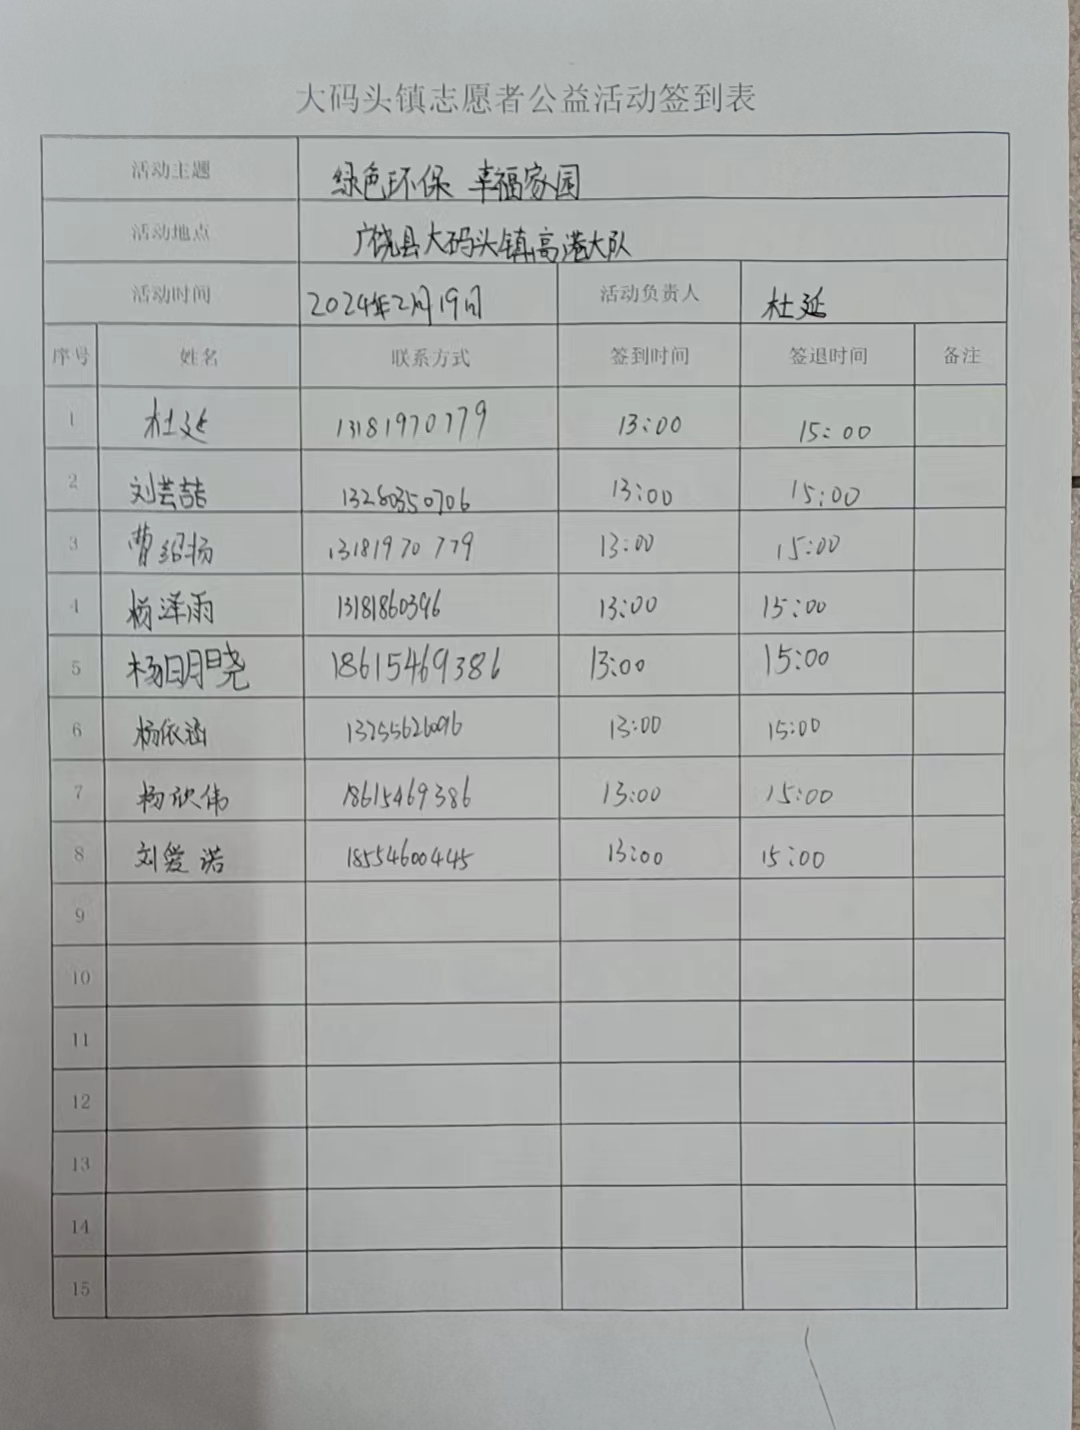 大码头镇志愿者公益活动签到表
活动主题 绿色环保 幸福家园
活动地点 广饶县大码头镇高港大队
活动时间 2024年2月19日 活动负责人 杜延
序号 姓名 联系方式 签到时间 签退时间 备注
1 杜延 13181970779 13:00 15:00
2 刘芸喆 13280350706 13:00 15:00
3 曹绍扬 13181970779 13:00 15:00
4 杨泽雨 13181860396 13:00 15:00
5 杨明晓 18615469386 13:00 15:00
6 杨依涵 13255626096 13:00 15:00
7 杨欣伟 18615469386 13:00 15:00
8 刘爱诺 18554600445 13:00 15:00
9
10
11
12
13
14
15